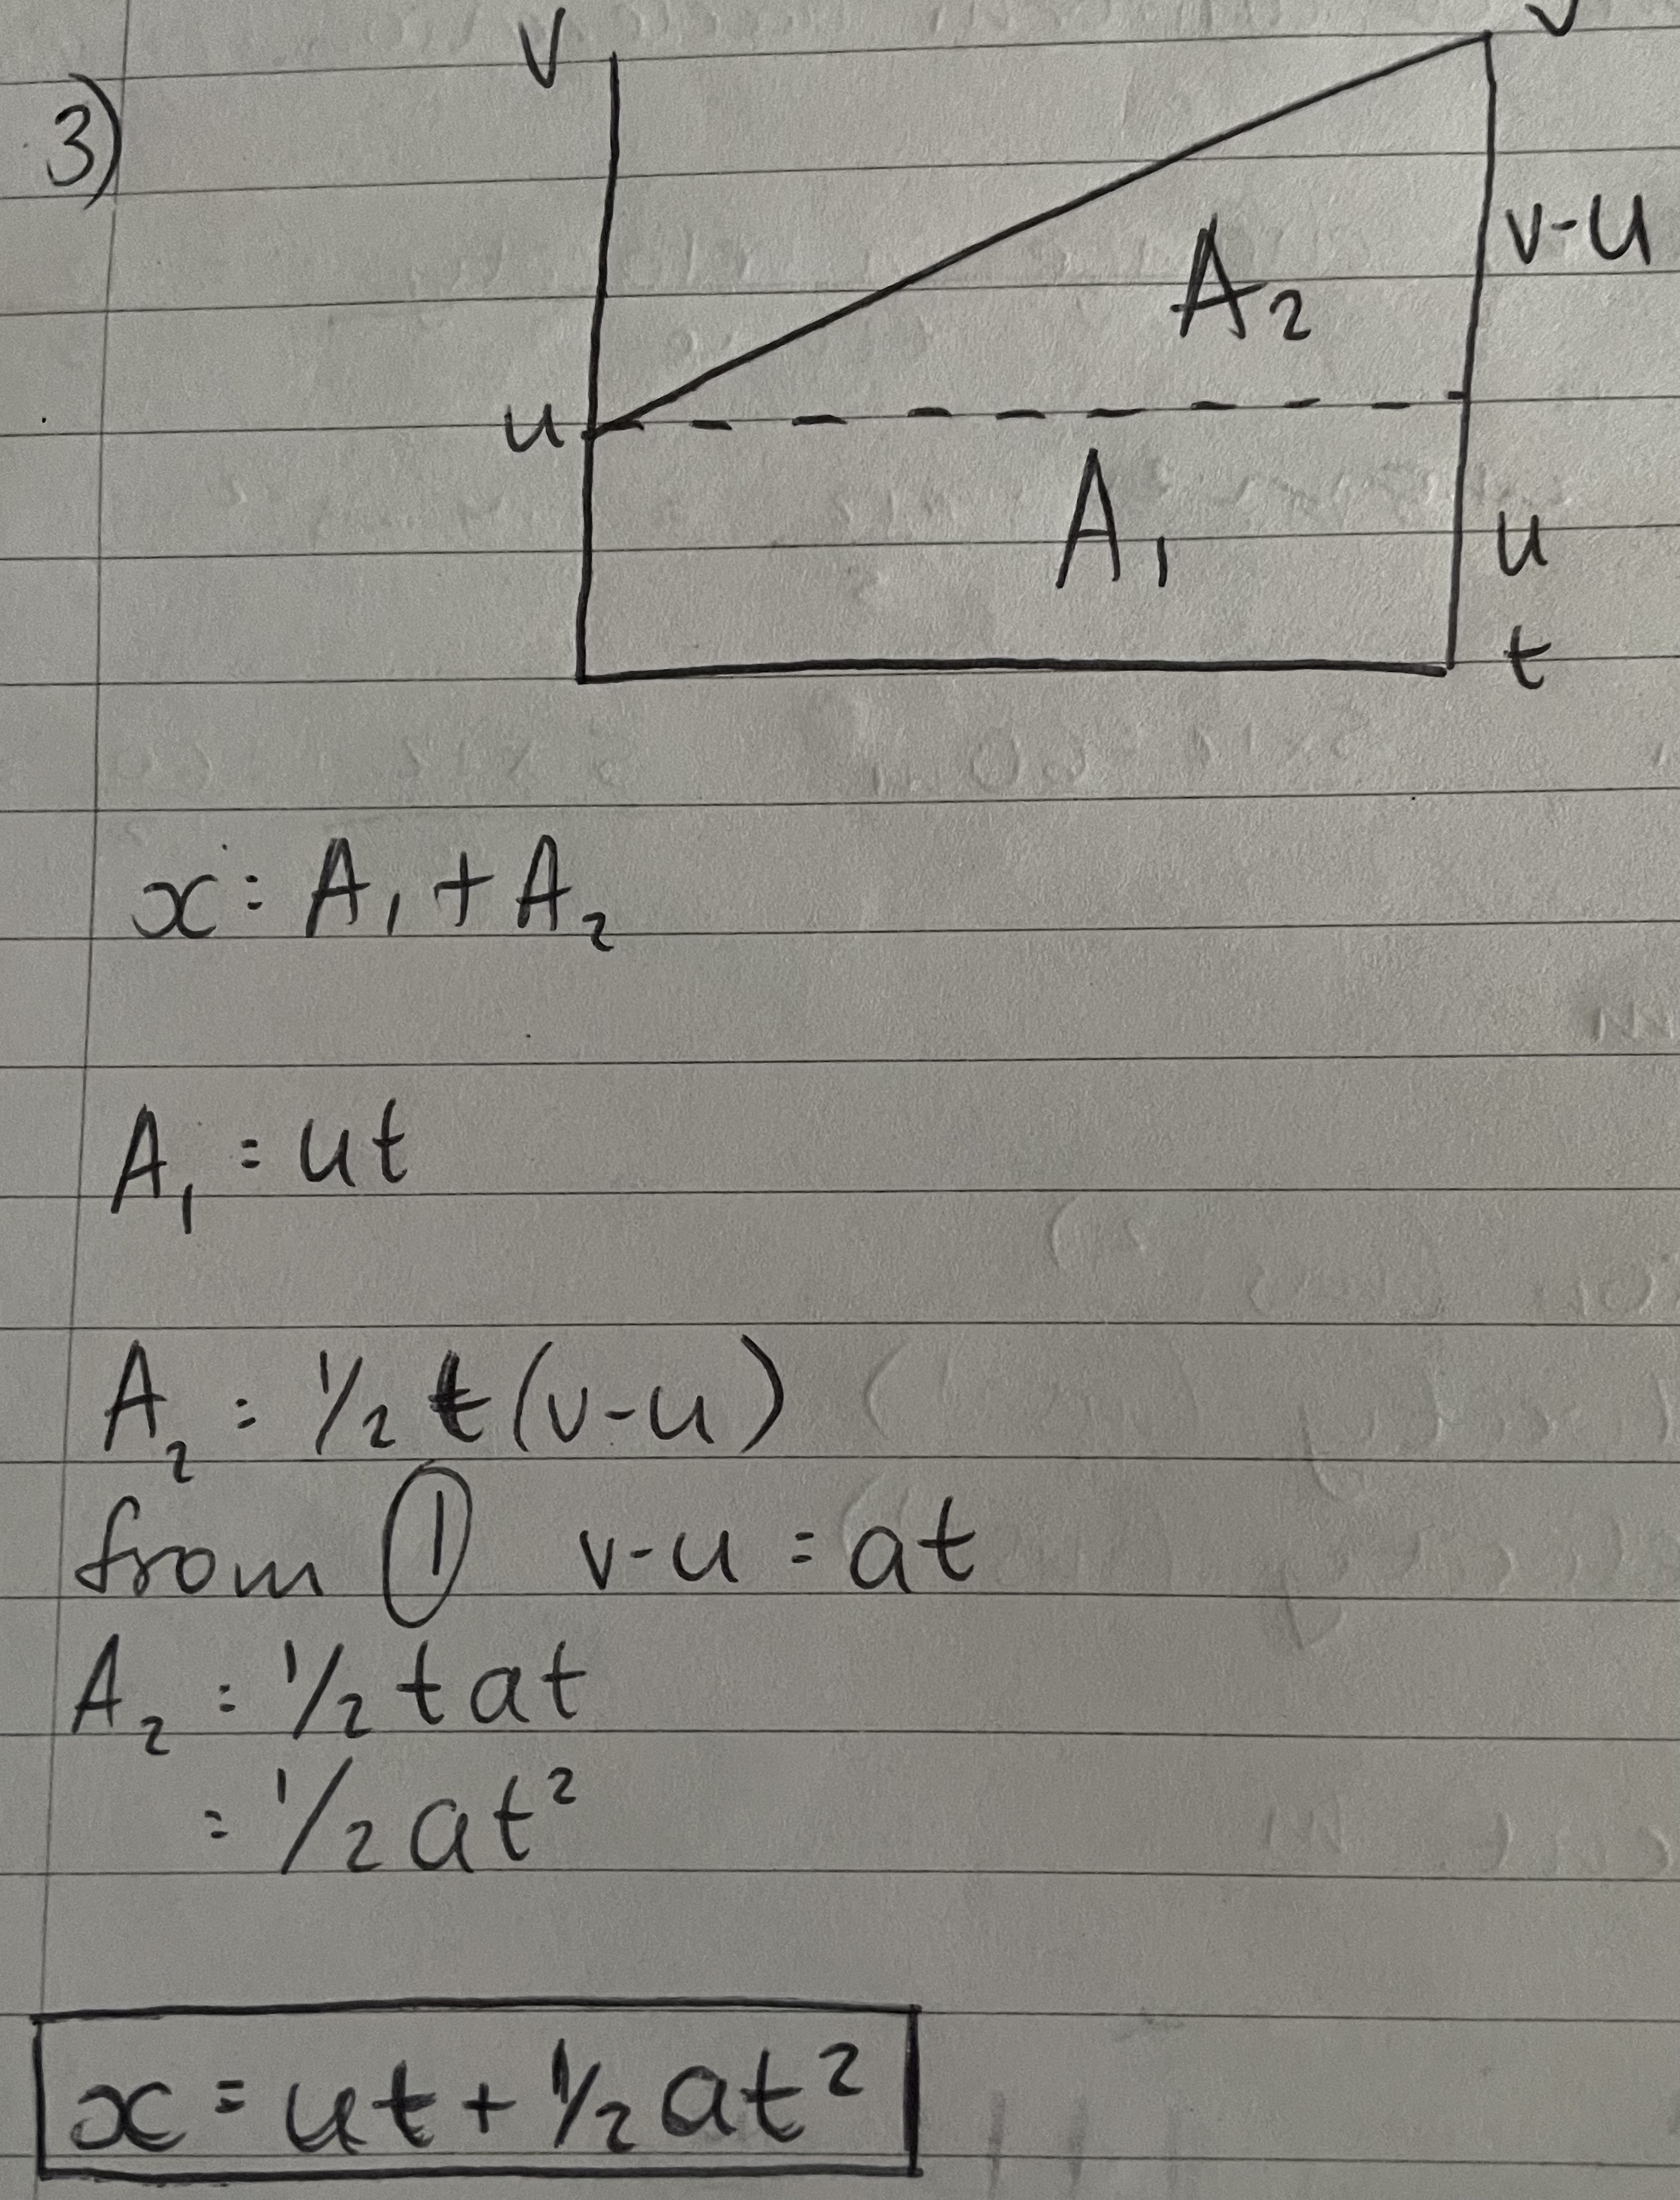 3)
v
v
v-u
A₂
u
A₁
u
t
x = A₁ + A₂
A₁ = ut
A₂ = 1/2 t (v-u)
from ① v-u = at
A₂ = 1/2 t at
= 1/2 at²
x = ut + 1/2 at²